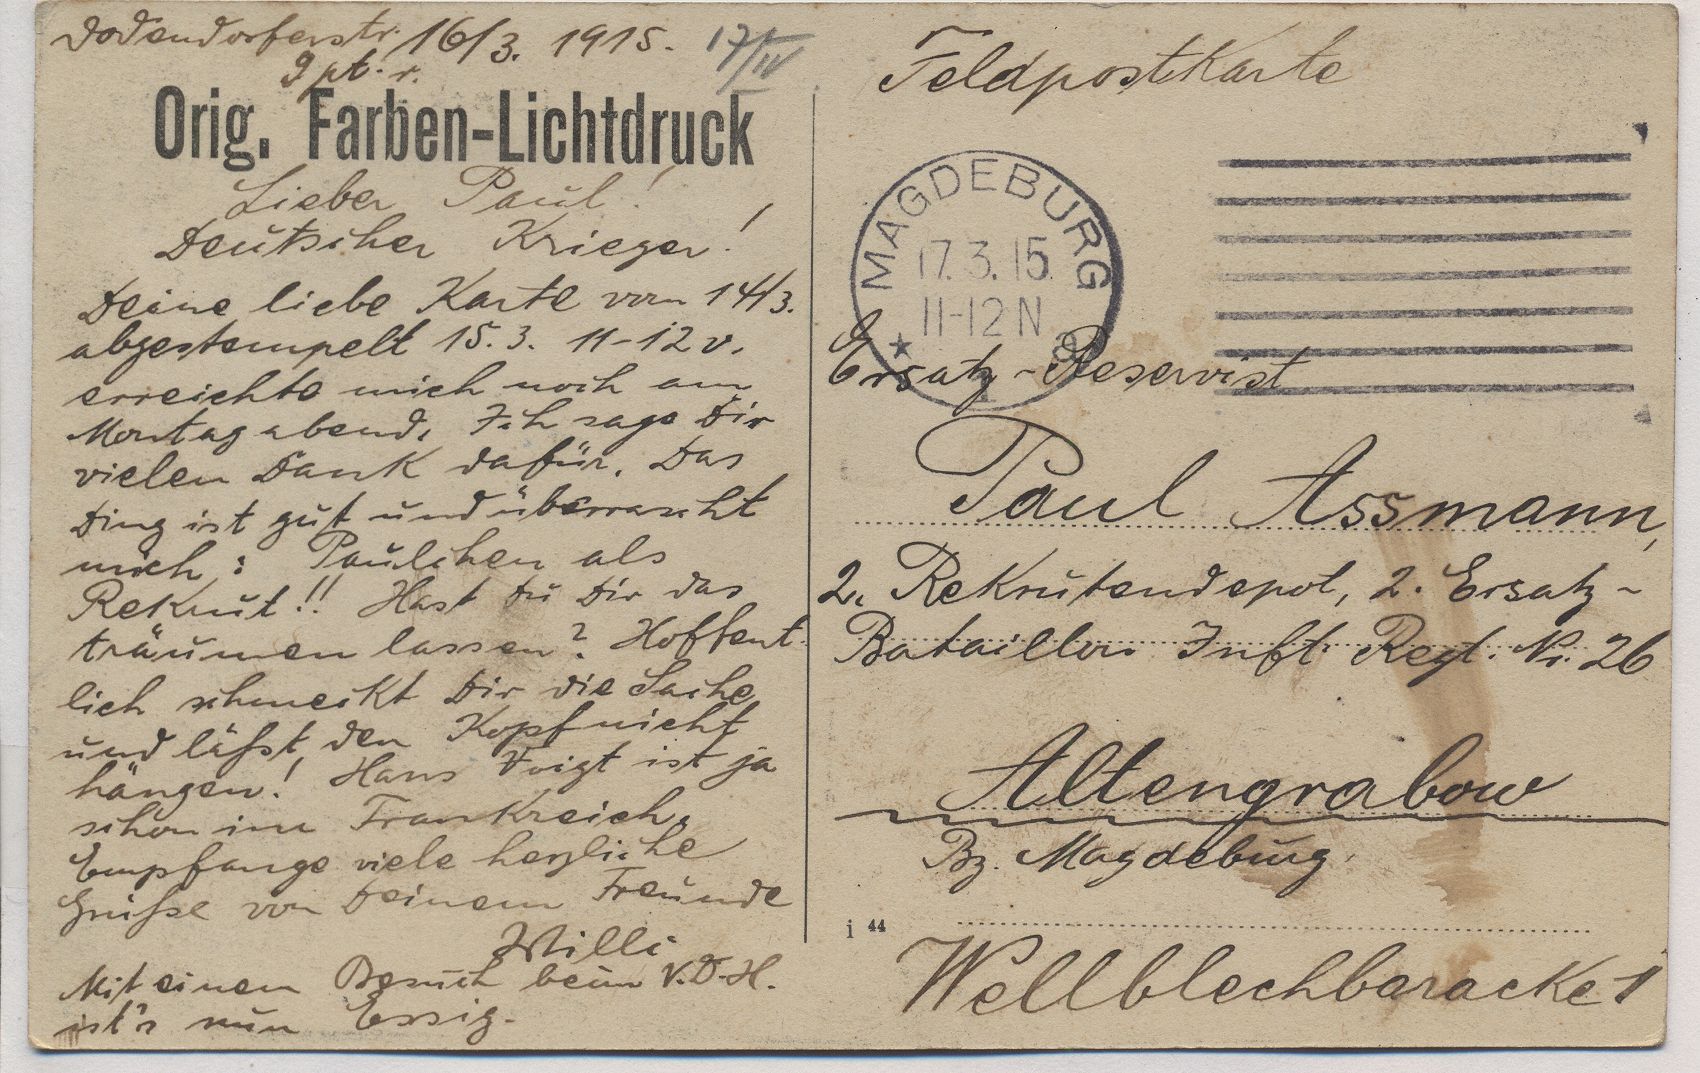 Dodendorferstr. 16/3. 1915. 17/III
9 pt. r.
Orig. Farben-Lichtdruck
Lieber Paul!
Deutscher Krieger!
Deine liebe Karte vom 14/3.
abgestempelt 15.3. 11-12 v.
erreichte mich noch am
Montag abend. Ich sage Dir
vielen Dank dafür. Das
Ding ist gut und überrascht
mich: Paulchen als
Rekrut!! Hast Du Dir das
träumen lassen? Hoffent-
lich schmeckt Dir die Sache
und läßt den Kopf nicht
hängen! Hans Voigt ist ja
schon in Frankreich.
Empfange viele herzliche
Grüße von Deinem Freunde
Willi
Mit einem Besuch beim V.D.H.
ist's nun Essig.
Feldpostkarte
MAGDEBURG
17.3.15.
11-12 N
* 1
Ersatz-Reservist
Paul Assmann,
2. Rekrutendepot, 2. Ersatz-
Bataillon Inft. Regt. Nr. 26
Altengrabow
Bz. Magdeburg.
i 44
Wellblechbaracke 1